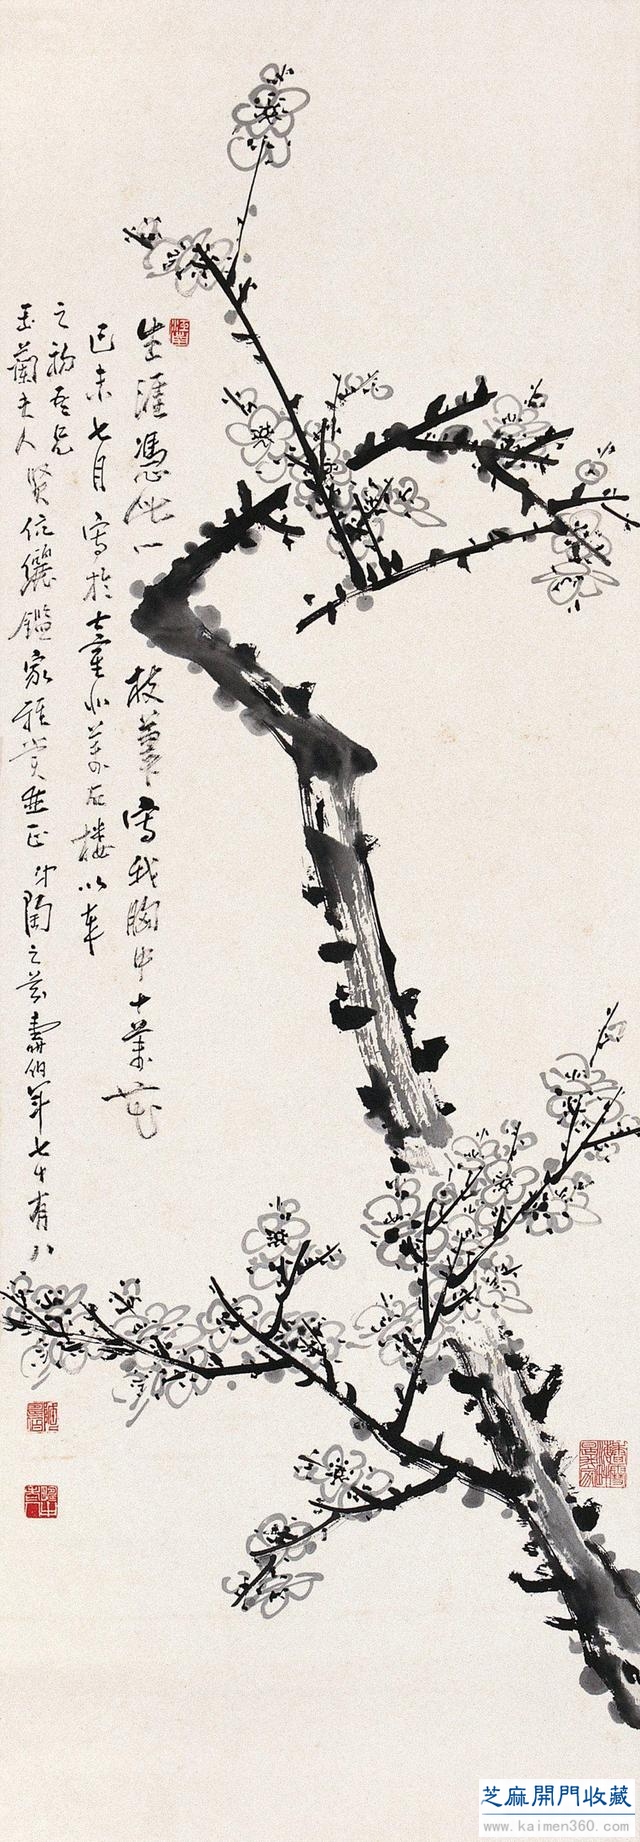 生涯憑此一枝筆寫我胸中十萬花
己未七月寫於臺北萬石樓以奉
之吾兄
玉蘭夫人賢伉儷鑑家雅賞並正弟陶之芬壽伯年七十有八
芝麻開門收藏
www.kaimen360.com